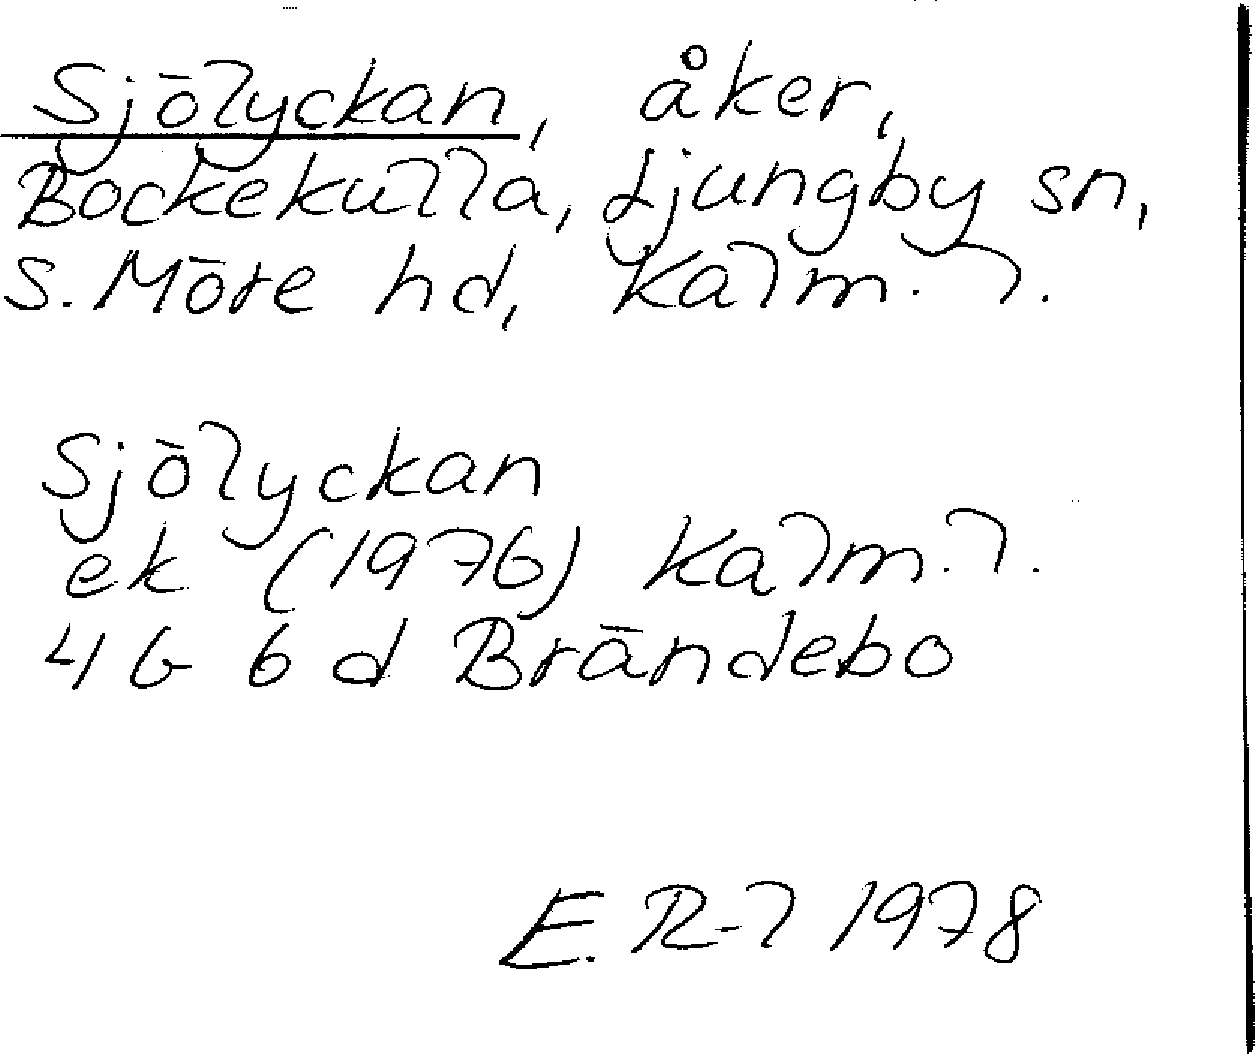 Sjölyckan, åker,
Bockekulla, Ljungby sn,
S. Möre hd, Kalm. l.
Sjölyckan
ek (1976) Kalm. l.
4 G 6 d Brändebo
E. R-l 1978